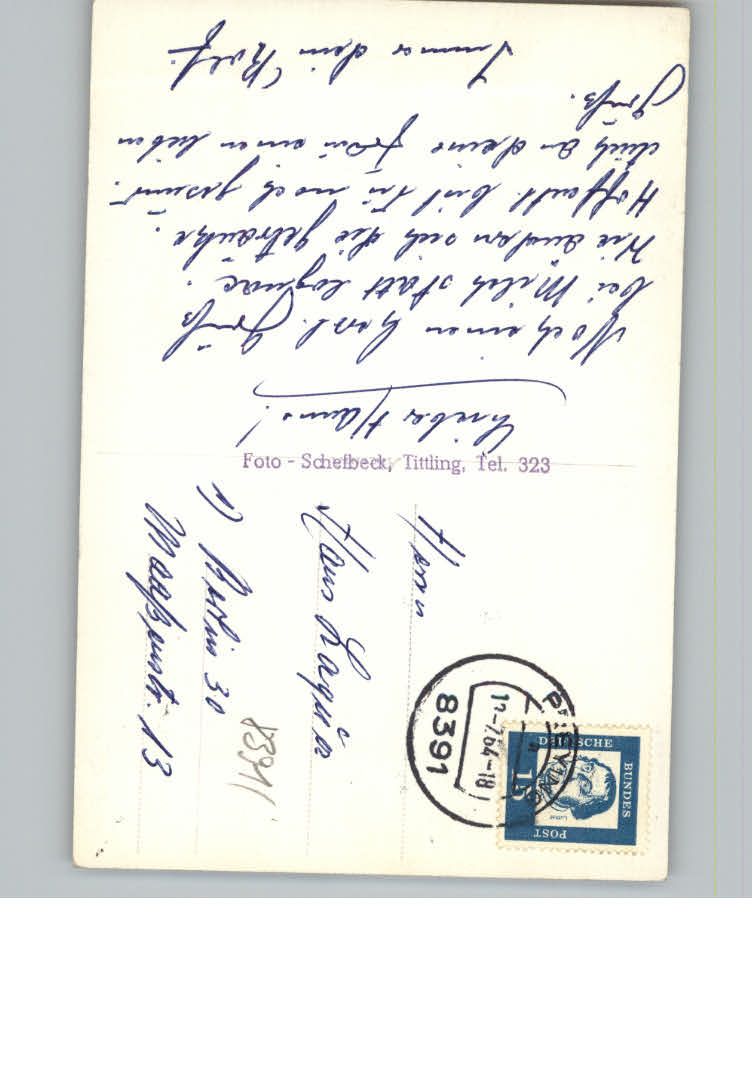 Lieber Hans!
Noch einen herzl. Gruß
bei Milch statt Cognac.
Wie ändern sich die Getränke.
Hoffentl. bist Du noch gesund.
auch an deine Frau einen lieben
Gruß.
Immer dein Rolf.
Foto - Schefbeck, Tittling, Tel. 323
Herrn
Hans
1) Berlin 30
Maaßenstr. 13
8391
8391
7.64-18
DEUTSCHE
BUNDES
POST
15
Luther